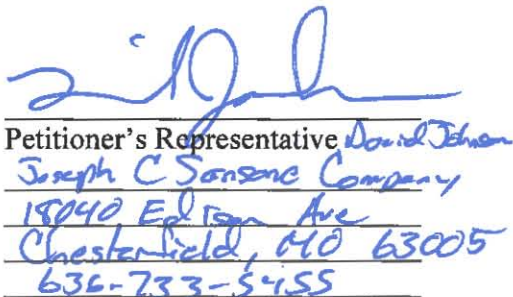 Petitioner's Representative David Johnson
Joseph C Sansone Company
18040 Edison Ave
Chesterfield, MO 63005
636-733-5455